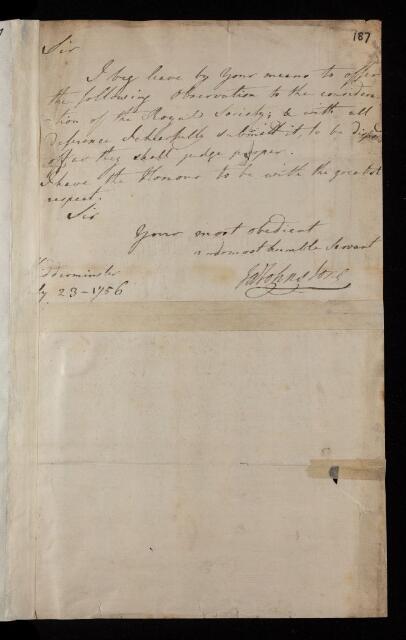 187
Sir
I beg leave by Your means to offer
the following Observation to the considera
-tion of the Royal Society; & with all
deference I cheerfully submit it, to be dispos
off as they shall judge proper.
I have the Honour to be with the greatest
respect.
Sir
Your most obedient
and most humble Servant
Ja Johnstone
dderminster
ly 23 - 1756